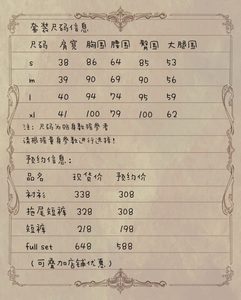 套装尺码信息
尺码 肩宽 胸围 腰围 臀围 大腿围
s 38 86 64 85 53
m 39 90 69 90 56
l 40 94 74 95 59
xl 41 100 79 100 62
注：尺码为贴身数据参考
请根据量身参数进行选择！
预约信息：
品名 现货价 预约价
衬衫 338 308
拖尾短裤 328 308
短裤 218 198
full set 648 588
（可叠加店铺优惠）